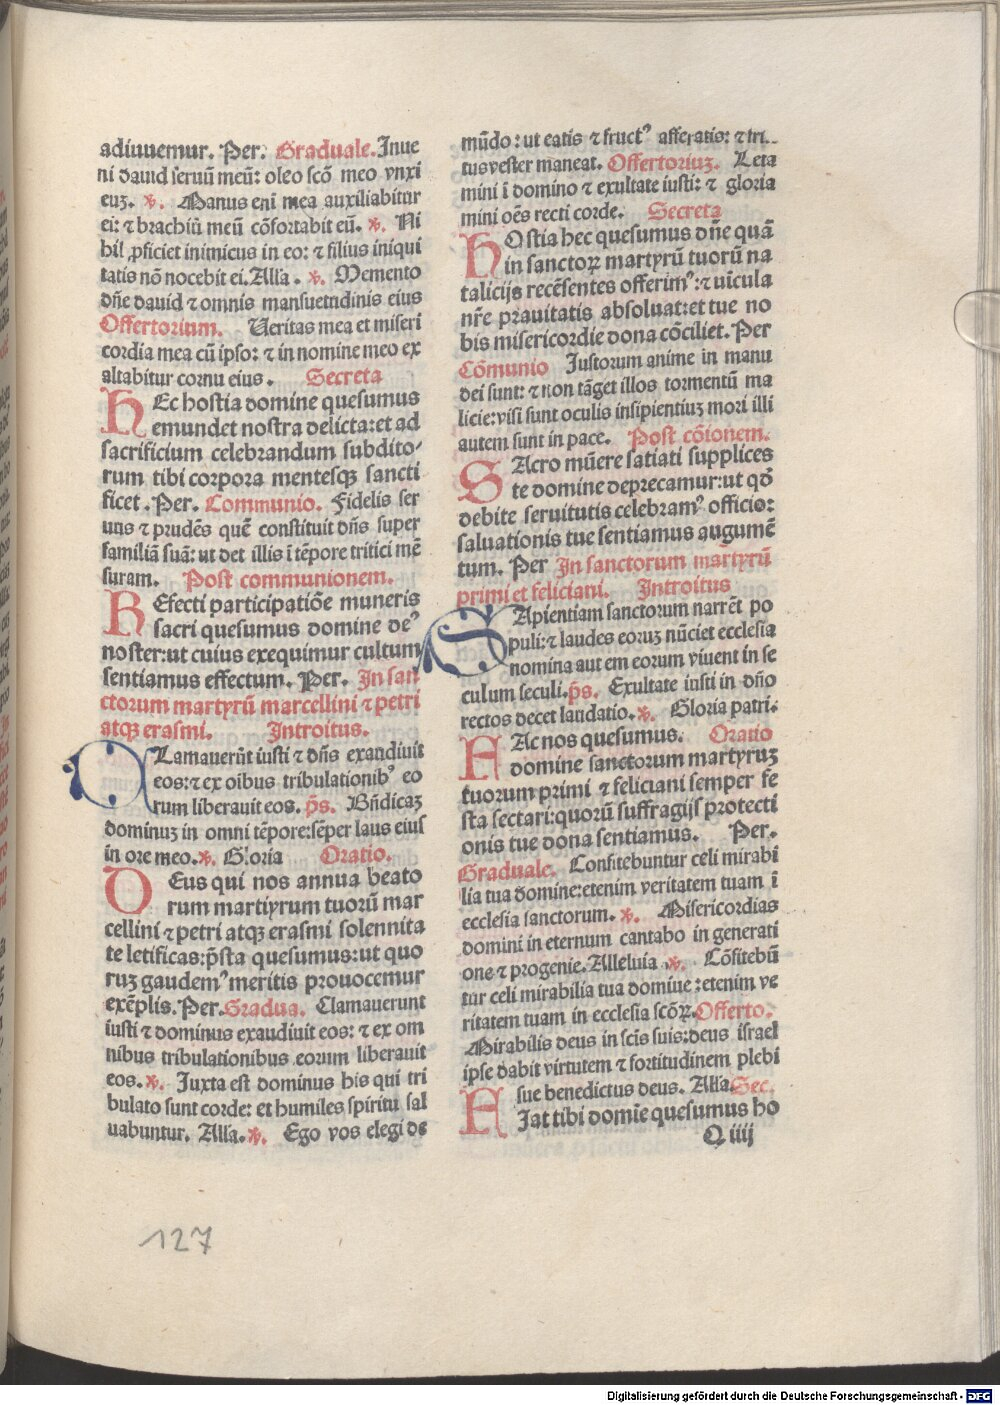 adiuuemur. Per. Graduale. Inue
ni dauid seruū meū: oleo scō meo vnxi
euʒ. ℣. Manus eni mea auxiliabitur
ei: ⁊ brachiū meū cōfortabit eū. ℣. Ni
hil ꝓficiet inimicus in eo: ⁊ filius iniqui
tatis nō nocebit ei. Alĺa. ℣. Memento
dñe dauid ⁊ omnis mansuetudinis eius
Offertorium. Ueritas mea et miseri
cordia mea cū ipso: ⁊ in nomine meo ex
altabitur cornu eius. Secreta
HEc hostia domine quesumus
emundet nostra delicta: et ad
sacrificium celebrandum subdito⸗
rum tibi corpora mentesqʒ sancti
ficet. Per. Communio. Fidelis ser
uus ⁊ prudēs quē constituit dñs super
familiā suā: ut det illis ī tēpore tritici mē
suram. Post communionem.
REfecti participatiōe muneris
sacri quesumus domine de⁹
noster: ut cuius exequimur cultum
sentiamus effectum. Per. In san
ctorum martyrū marcellini ⁊ petri
atqʒ erasmi. Introitus.
CLamauerūt iusti ⁊ dñs exaudiuit
eos: ⁊ ex oībus tribulationib⁹ eo
rum liberauit eos. p̄s. Bñdicaʒ
dominuʒ in omni tēpore: sēper laus eius
in ore meo. ℣. Gloria Oratio.
DEus qui nos annua beato
rum martyrum tuorū mar
cellini ⁊ petri atqʒ erasmi solennita
te letificas: p̄sta quesumus: ut quo
ruʒ gaudem⁹ meritis prouocemur
exēplis. Per. Gradua. Clamauerunt
iusti ⁊ dominus exaudiuit eos: ⁊ ex om
nibus tribulationibus eorum liberauit
eos. ℣. Juxta est dominus his qui tri
bulato sunt corde: et humiles spiritu sal
uabuntur. Alĺa. ℣. Ego vos elegi de
mūdo: ut eatis ⁊ fruct⁹ afferatis: ⁊ fru
tus vester maneat. Offertoriuʒ. Leta
mini ī domino ⁊ exultate iusti: ⁊ gloria
mini oēs recti corde. Secreta
HOstia hec quesumus dñe quā
in sanctoꝝ martyrū tuorū na
talicijs recēsentes offerim⁹: ⁊ uīcula
nr̄e prauitatis absoluat: et tue no
bis misericordie dona cōciliet. Per
Cōmunio Justorum anime in manu
dei sunt: ⁊ non tāget illos tormentū ma
licie: visi sunt oculis insipientiuʒ mori illi
autem sunt in pace. Post cōionem.
SAcro mūere satiati supplices
te domine deprecamur: ut qđ
debite seruitutis celebram⁹ officio:
saluationis tue sentiamus augumē
tum. Per In sanctorum martyrū
primi et feliciani. Introitus
SApientiam sanctorum narrēt po
puli: ⁊ laudes eoruʒ nūciet ecclesia
nomina autem eorum viuent in se
culum seculi. p̄s. Exultate iusti in dño
rectos decet laudatio. ℣. Gloria patri.
FAc nos quesumus. Oratio
domine sanctorum martyruʒ
tuorum primi ⁊ feliciani semper fe
sta sectari: quorū suffragijs protecti
onis tue dona sentiamus. Per.
Graduale. Confitebuntur celi mirabi
lia tua domine: etenim veritatem tuam ī
ecclesia sanctorum. ℣. Misericordias
domini in eternum cantabo in generati
one ⁊ progenie. Alleluia. ℣. Cōfitebū
tur celi mirabilia tua domine: etenim ve
ritatem tuam in ecclesia scōꝝ. Offerto.
Mirabilis deus in scīs suis: deus israel
ipse dabit virtutem ⁊ fortitudinem plebi
sue benedictus deus. Alĺa Sec.
FIat tibi domīe quesumus ho
Q iiij
127
Digitalisierung gefördert durch die Deutsche Forschungsgemeinschaft - DFG